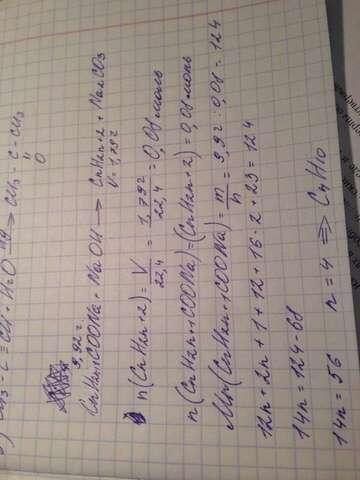 CH3-C≡CH + H2O → CH3 - C - CH3
||
O
9,92г
CnH2n+1COONa + NaOH → CnH2n+2 + Na2CO3
V= 1,79г
n(CnH2n+2) = V/22,4 = 1,792/22,4 = 0,08 моль
n(CnH2n+1COONa) = (CnH2n+2) = 0,08 моль
Mm(CnH2n+1COONa) = m/n = 9,92 : 0,08 = 124
12n + 2n + 1 + 12 + 16·2 + 23 = 124
14n = 124 - 68
14n = 56 n = 4 ⇒ C4H10